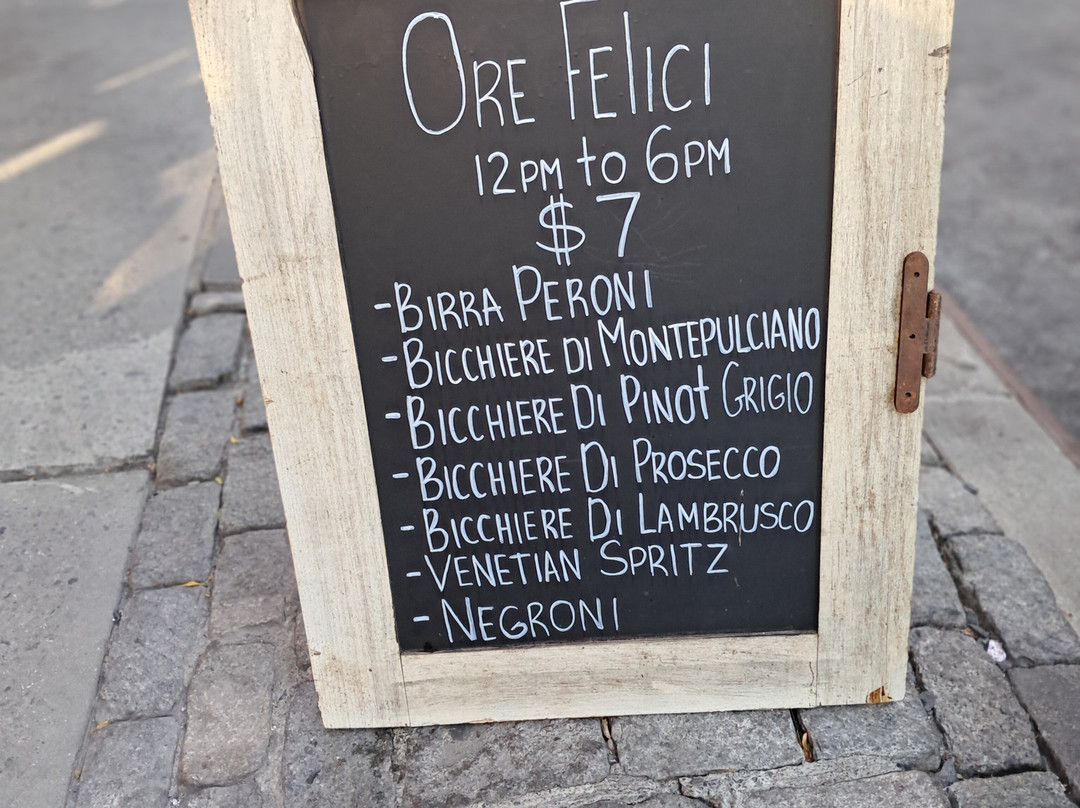 Ore Felici
12pm to 6pm
$7
-Birra Peroni
-Bicchiere di Montepulciano
-Bicchiere Di Pinot Grigio
-Bicchiere Di Prosecco
-Bicchiere Di Lambrusco
-Venetian Spritz
-Negroni